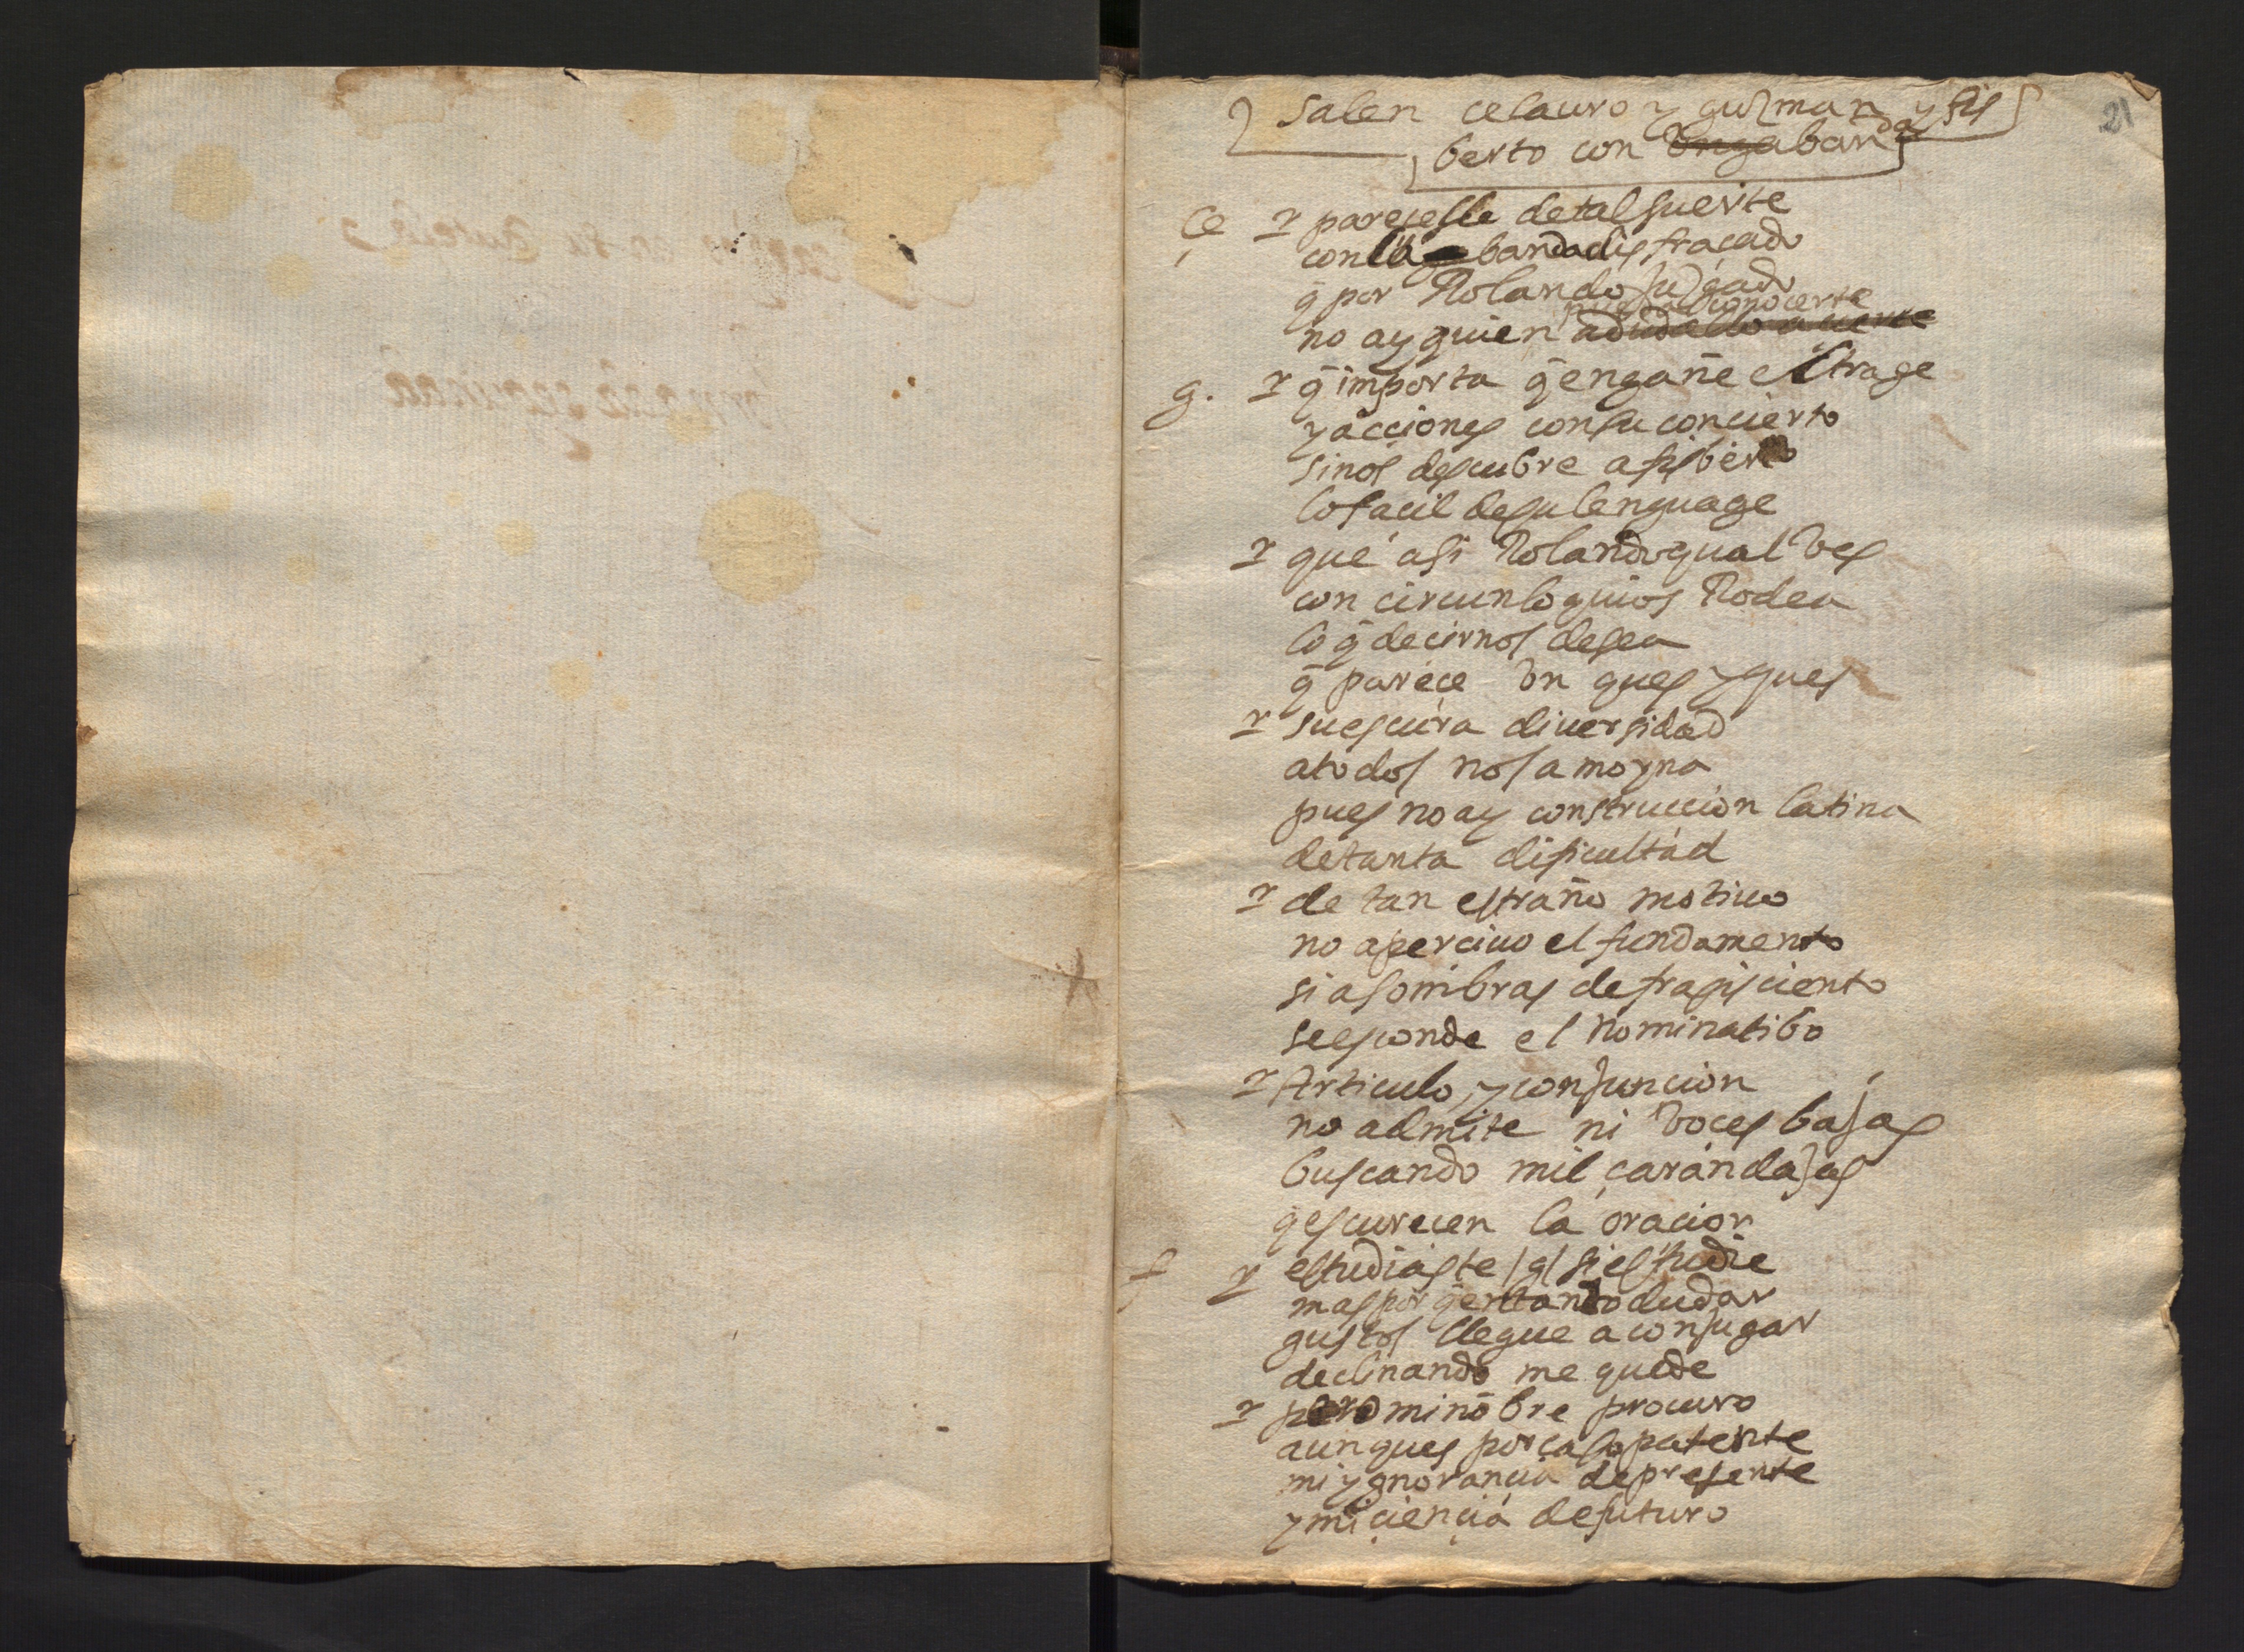 21
salen celauro y guzman y fis
berto con banda
Ce r pareceste de tal suerte
con la banda disfraçado
q̄ por Rolando juzgado
no ay quien conocerte
g. r q̄ importa q̄ engañe el trage
y acciones con su concierto
si nos descubre a fisberto
lo facil de su lenguage
r que asi Rolando qual ves
con circunloquios Rodea
lo q̄ decirnos desea
q̄ parece vn ques y ques
r su escura diuersidad
a todos nos amoyna
pues no ay construccion latina
de tanta dificultad
r de tan estraño motiuo
no aperciuo el fundamento
si a sombras de frasis ciento
se esconde el nominatibo
r Articulo, y conjuncion
no admite ni voces bajas
buscando mil çarandajas
q̄ escurecen la oracion
f r estudiaste /g/ si estudie
mas por q̄ en tanto dudar
gustos llegue a conjugar
declinando me quede
r pero mi nōbre procuro
aunques por caso patente
mi ygnorancia de presente
y mi ciencia de futuro